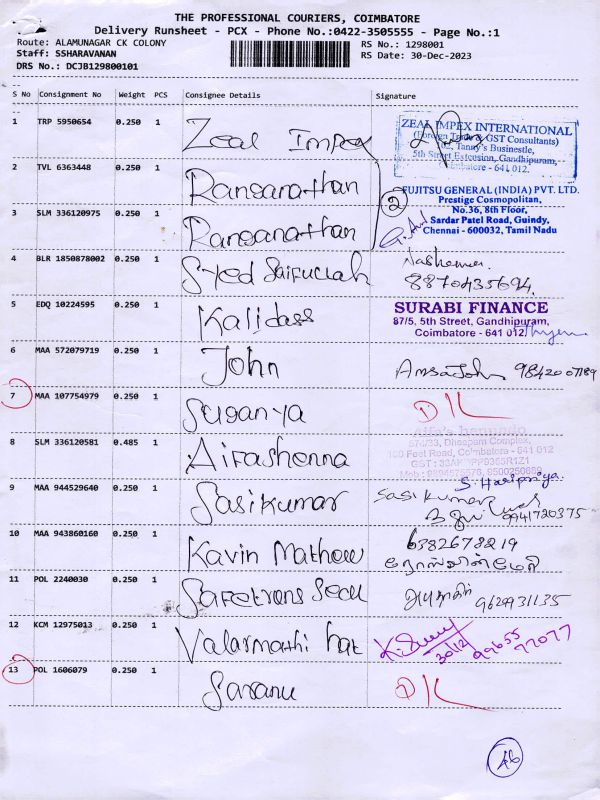 THE PROFESSIONAL COURIERS, COIMBATORE
Delivery Runsheet - PCX - Phone No.:0422-3505555 - Page No.:1
Route: ALAMUNAGAR CK COLONY
Staff: SSHARAVANAN
DRS No.: DCJB129800101
RS No.: 1298001
RS Date: 30-Dec-2023
S No Consignment No Weight PCS Consignee Details Signature
1 TRP 5950654 0.250 1 Zeal Impex
ZEAL IMPEX INTERNATIONAL
(Foreign Trade & GST Consultants)
5th Street Extension, Gandhipuram,
Coimbatore - 641 012.
2 TVL 6363448 0.250 1 Ranganathan
3 SLM 336120975 0.250 1 Ranganathan
2
FUJITSU GENERAL (INDIA) PVT. LTD.
Prestige Cosmopolitan,
No.36, 8th Floor,
Sardar Patel Road, Guindy,
Chennai - 600032, Tamil Nadu
4 BLR 1850878002 0.250 1 Syed Saifullah
8870435694.
5 EDQ 10224595 0.250 1 Kalidass
SURABI FINANCE
87/5, 5th Street, Gandhipuram,
Coimbatore - 641 012
6 MAA 572079719 0.250 1 John
7 MAA 107754979 0.250 1 Suganya
DL
8 SLM 336120581 0.485 1
Dheepam Complex,
100 Feet Road, Coimbatore - 641 012
9 MAA 944529640 0.250 1 Sasikumar
S. Haripriya
Sasikumar
9941720375
10 MAA 943860160 0.250 1 Kavin Mathew
6382678219
11 POL 2240030 0.250 1
9629931135
12 KCM 12975013 0.250 1 Valarmathi
30/12
99655
77077
13 POL 1606079 0.250 1
DL